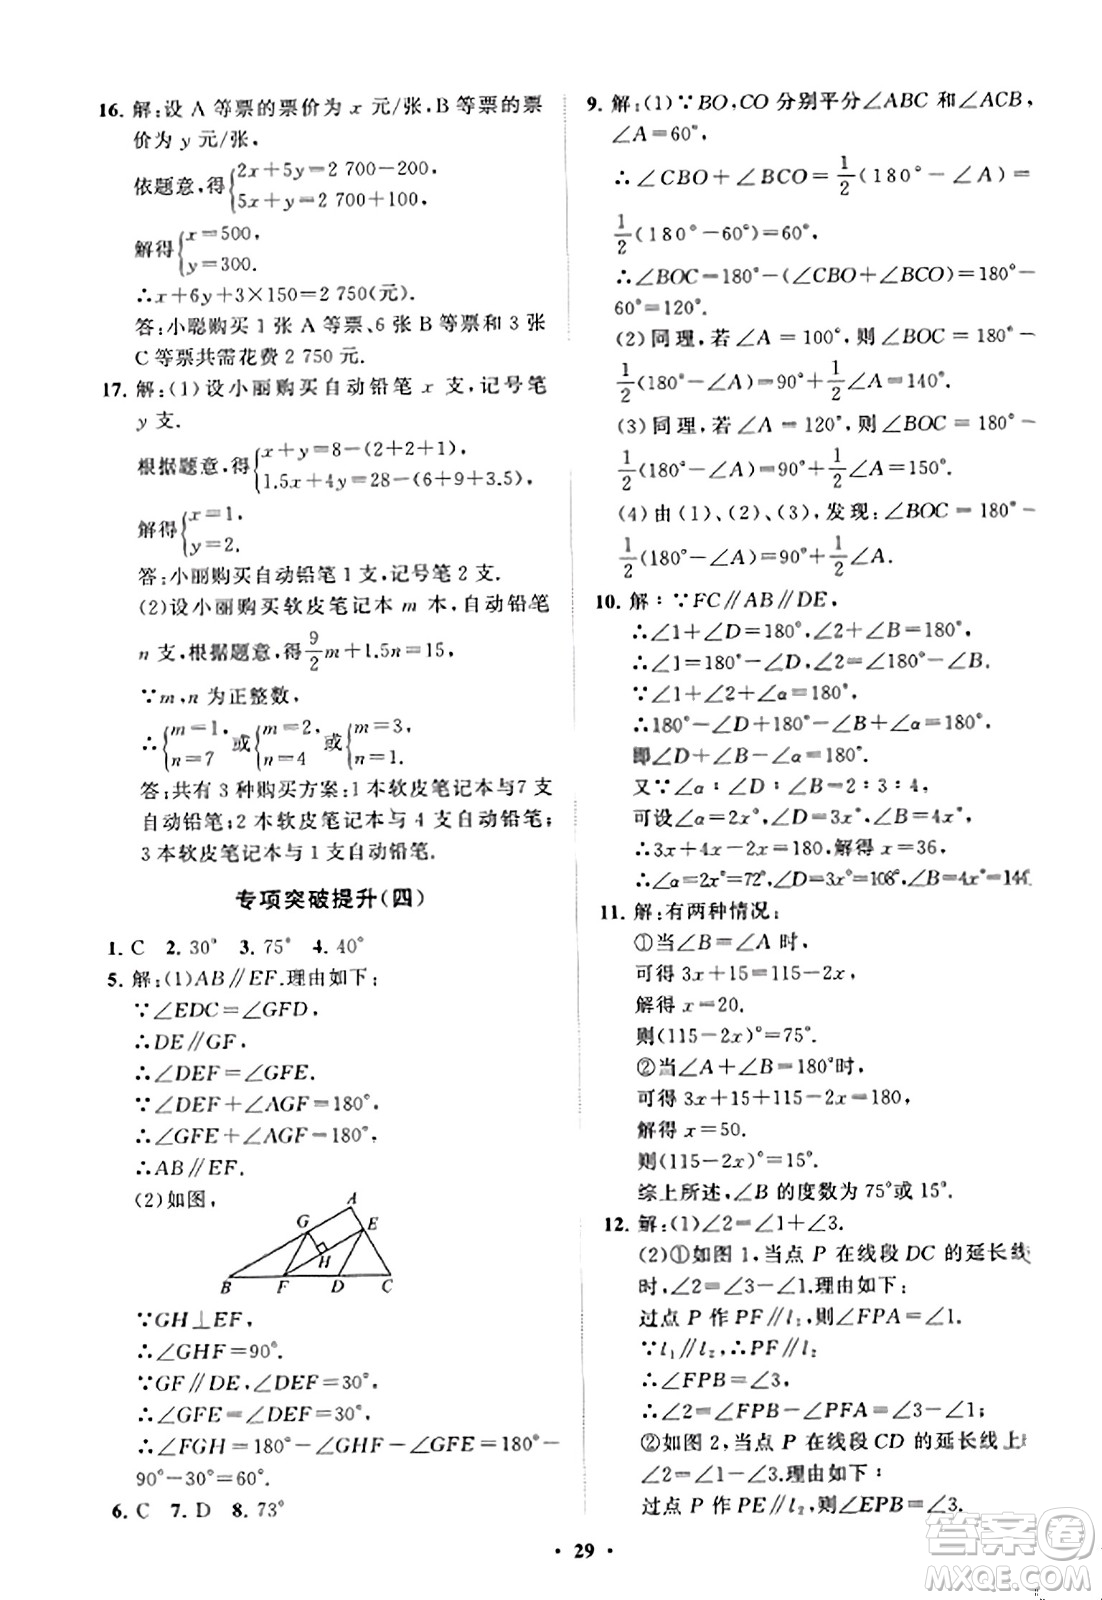 16. 解:设 A 等票的票价为 x 元/张,B 等票的票
价为 y 元/张.
依题意,得{2x+5y=2 700-200,
5x+y=2 700+100,
解得{x=500,
y=300.
∴x+6y+3×150=2 750(元).
答:小聪购买 1 张 A 等票、6 张 B 等票和 3 张
C 等票共需花费 2 750 元.
17. 解:(1)设小丽购买自动铅笔 x 支,记号笔
y 支.
根据题意,得{x+y=8-(2+2+1),
1.5x+4y=28-(6+9+3.5),
解得{x=1,
y=2.
答:小丽购买自动铅笔 1 支,记号笔 2 支.
(2)设小丽购买软皮笔记本 m 本,自动铅笔
n 支,根据题意,得9/2m+1.5n=15,
∵m,n 为正整数,
∴{m=1, n=7 或{m=2, n=4 或{m=3, n=1.
答:共有 3 种购买方案:1 本软皮笔记本与7 支
自动铅笔;2 本软皮笔记本与 4 支自动铅笔;
3 本软皮笔记本与 1 支自动铅笔.
专项突破提升(四)
1. C 2. 30° 3. 75° 4. 40°
5. 解:(1)AB∥EF.理由如下:
∵∠EDC=∠GFD,
∴DE∥GF.
∴∠DEF=∠GFE.
∵∠DEF+∠AGF=180°,
∴∠GFE+∠AGF=180°,
∴AB∥EF.
(2)如图,
A
G
E
H
B F D C
∵GH⊥EF,
∴∠GHF=90°.
∵GF∥DE,∠DEF=30°,
∴∠GFE=∠DEF=30°.
∴∠FGH=180°-∠GHF-∠GFE=180°-
90°-30°=60°.
6. C 7. D 8. 73°
9. 解:(1)∵BO,CO 分别平分∠ABC 和∠ACB,
∠A=60°,
∴∠CBO+∠BCO=1/2(180°-∠A)=
1/2(180°-60°)=60°.
∴∠BOC=180°-(∠CBO+∠BCO)=180°-
60°=120°.
(2)同理,若∠A=100°,则∠BOC=180°-
1/2(180°-∠A)=90°+1/2∠A=140°.
(3)同理,若∠A=120°,则∠BOC=180°-
1/2(180°-∠A)=90°+1/2∠A=150°.
(4)由(1)、(2)、(3),发现:∠BOC=180°-
1/2(180°-∠A)=90°+1/2∠A.
10. 解:∵FC∥AB∥DE,
∴∠1+∠D=180°,∠2+∠B=180°,
∴∠1=180°-∠D,∠2=∠180°-∠B.
∵∠1+∠2+∠α=180°,
∴180°-∠D+180°-∠B+∠α=180°,
即∠D+∠B-∠α=180°.
又∵∠α:∠D:∠B=2:3:4,
可设∠α=2x°,∠D=3x°,∠B=4x°,
∴3x+4x-2x=180,解得 x=36,
∴∠α=2x°=72°,∠D=3x°=108°,∠B=4x°=144
11. 解:有两种情况:
①当∠B=∠A 时,
可得 3x+15=115-2x,
解得 x=20.
则(115-2x)°=75°.
②当∠A+∠B=180°时,
可得 3x+15+115-2x=180,
解得 x=50.
则(115-2x)°=15°.
综上所述,∠B 的度数为 75°或 15°.
12. 解:(1)∠2=∠1+∠3.
(2)①如图 1,当点 P 在线段 DC 的延长线
时,∠2=∠3-∠1.理由如下:
过点 P 作 PF∥l₁,则∠FPA=∠1.
∵l₁∥l₂,∴PF∥l₂,
∴∠FPB=∠3,
∴∠2=∠FPB-∠FPA=∠3-∠1;
②如图 2,当点 P 在线段 CD 的延长线上
∠2=∠1-∠3.理由如下:
过点 P 作 PE∥l₂,则∠EPB=∠3.
29
答案圈
MXQE.COM